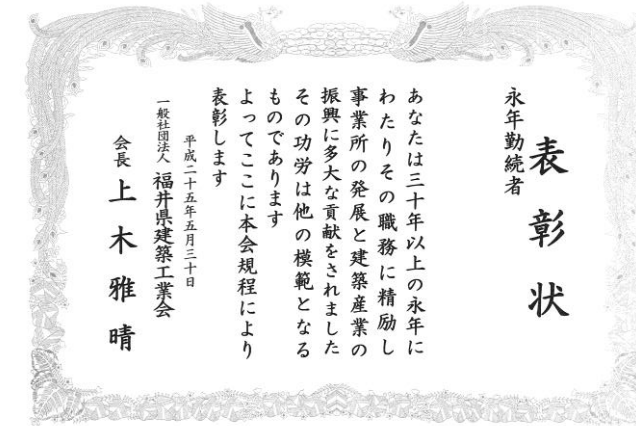 表彰状
永年勤続者
あなたは三十年以上の永年に
わたりその職務に精励し
事業所の発展と建築産業の
振興に多大な貢献をされました
その功労は他の模範となる
ものであります
よってここに本会規程により
表彰します
平成二十五年五月三十日
一般社団法人 福井県建築工業会
会長 上木雅晴